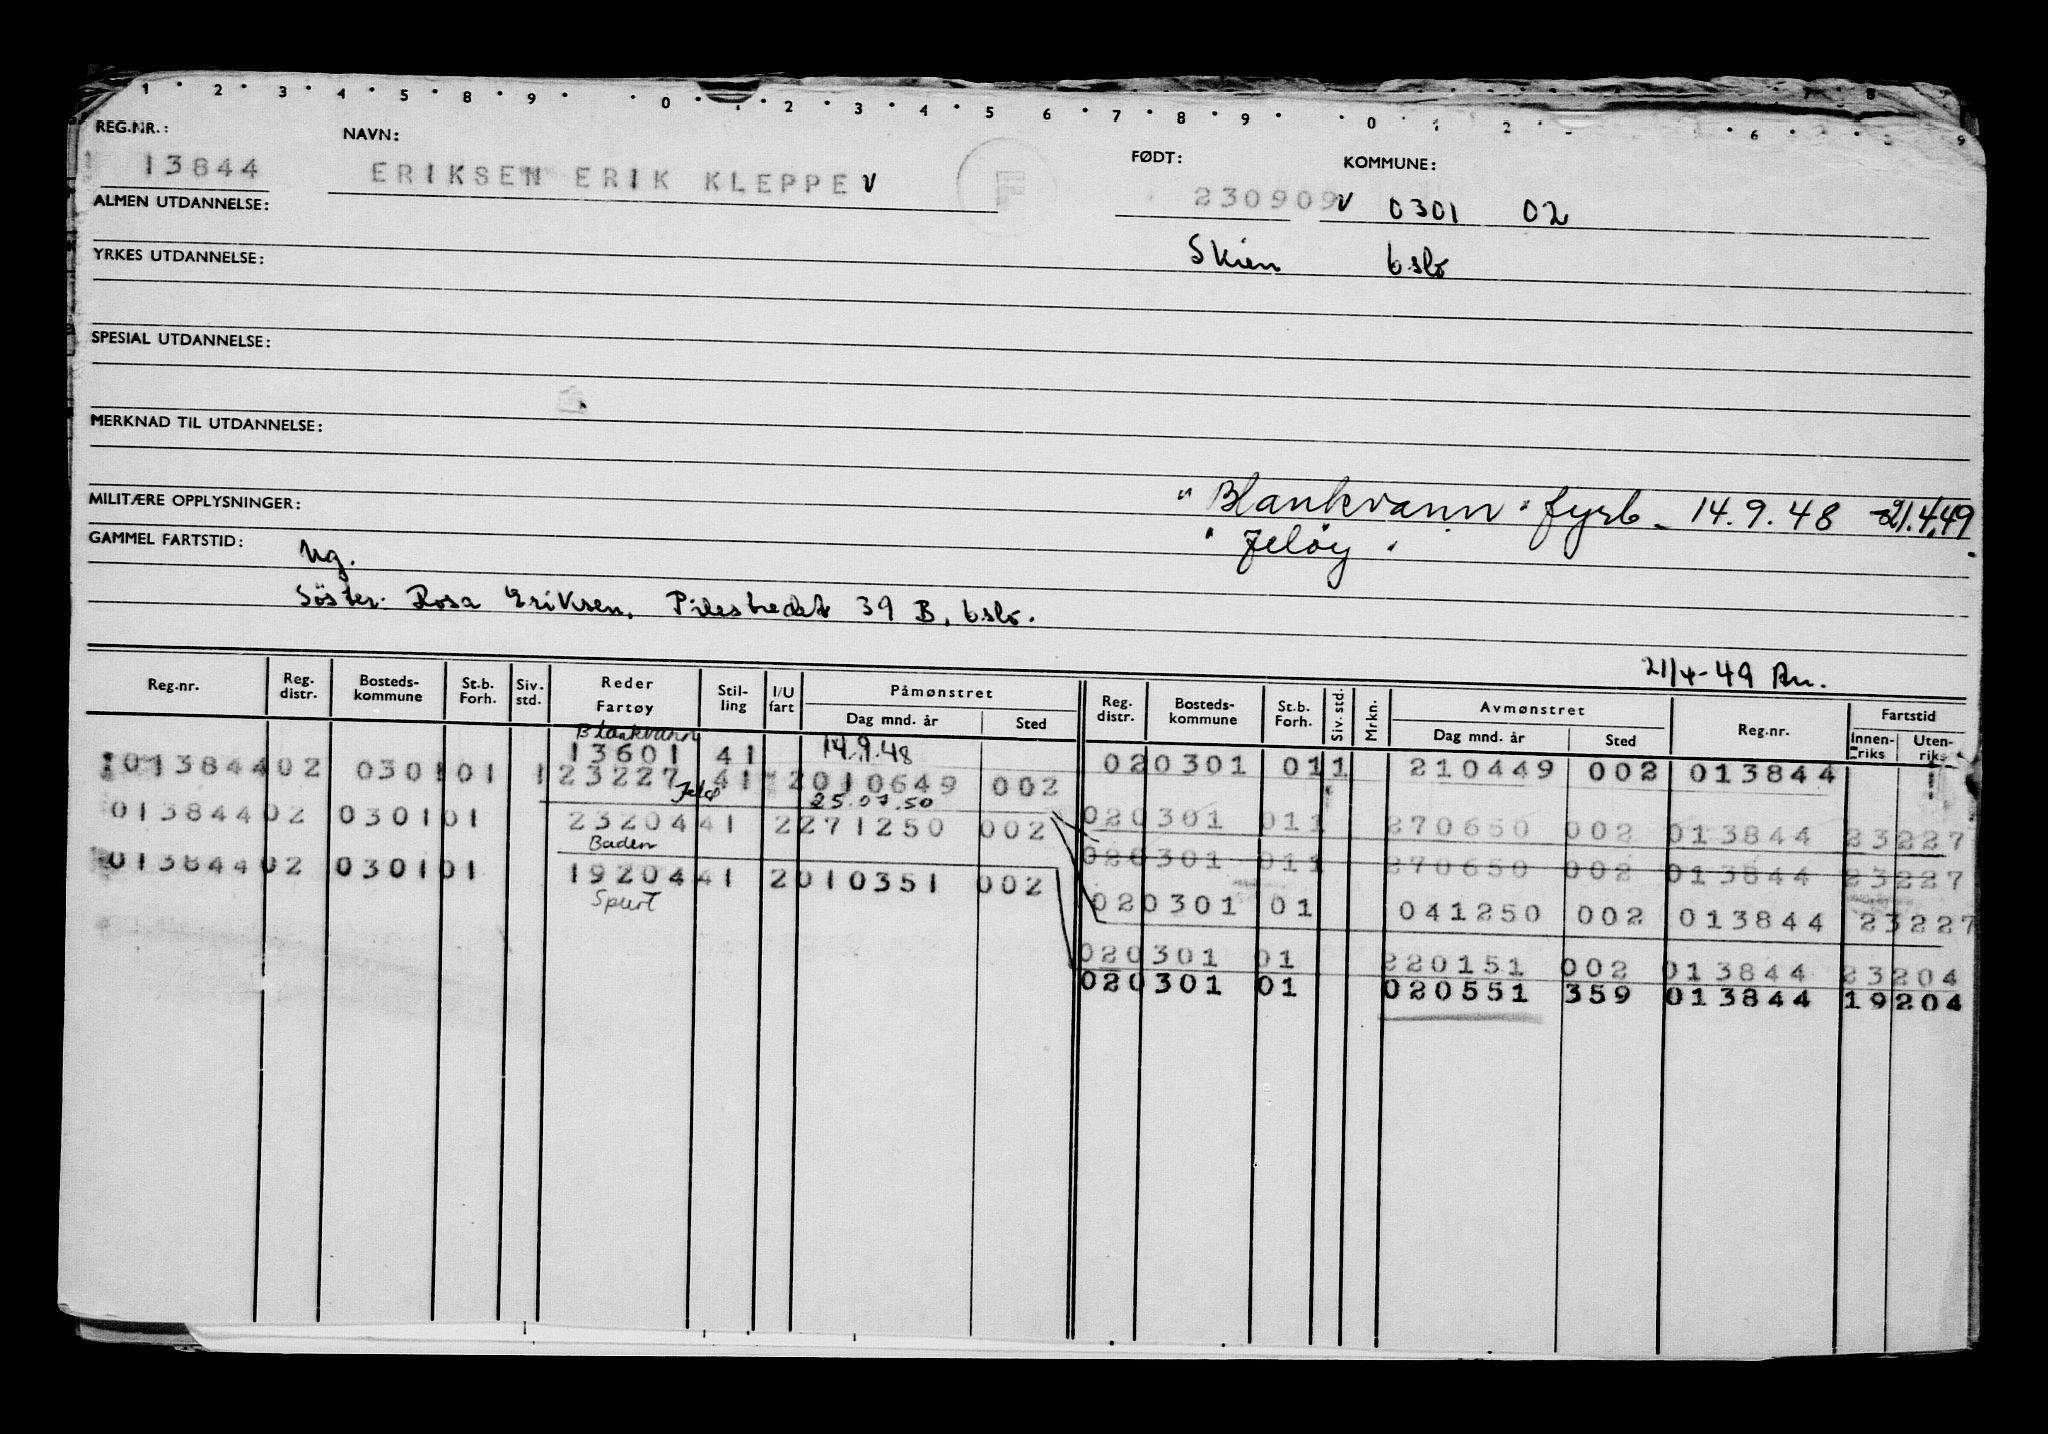 1 · 2 · 3 · 4 · 5 · 8 · 9 · · 0 · 1 · 2 · 3 · 4 · 5 · 6 · 7 · 8 · 9 · · 0 · 1 2 · 6 · 9
REG.NR.: NAVN: FØDT: KOMMUNE:
13844 ERIKSEN ERIK KLEPPE V F 230909 V 0301 02
ALMEN UTDANNELSE:
Skien Oslo
YRKES UTDANNELSE:
SPESIAL UTDANNELSE:
MERKNAD TIL UTDANNELSE:
MILITÆRE OPPLYSNINGER: "Blankvann" fyrb - 14.9.48 - 21.4.49.
GAMMEL FARTSTID: Ug. "Jeløy"
Söster: Rosa Eriksen, Pilestredet 39 B, Oslo.
21/4-49 An.
Reg.nr. Reg. distr. Bosteds-kommune St.b. Forh. Siv. std. Reder Fartøy Stil-ling I/U fart Påmønstret Dag mnd. år Sted Reg. distr. Bosteds-kommune St.b. Forh. Siv. std. Mrkn. Avmønstret Dag mnd. år Sted Reg.nr. Fartstid Innen-riks Uten-riks
Blankvann
13601 41 14.9.48 02 0301 01 1 210449 002 013844
013844 02 0301 01 1 23227 41 2 010649 002
Jelø 25.07.50
02 0301 01 1 270650 002 013844 23227
013844 02 0301 01 23204 41 2 271250 002
Baden
02 0301 01 1 270650 002 013844 23227
013844 02 0301 01 19204 41 2 010351 002
Spurt
02 0301 01 041250 002 013844 23227
02 0301 01 220151 002 013844 23204
02 0301 01 020551 359 013844 19204